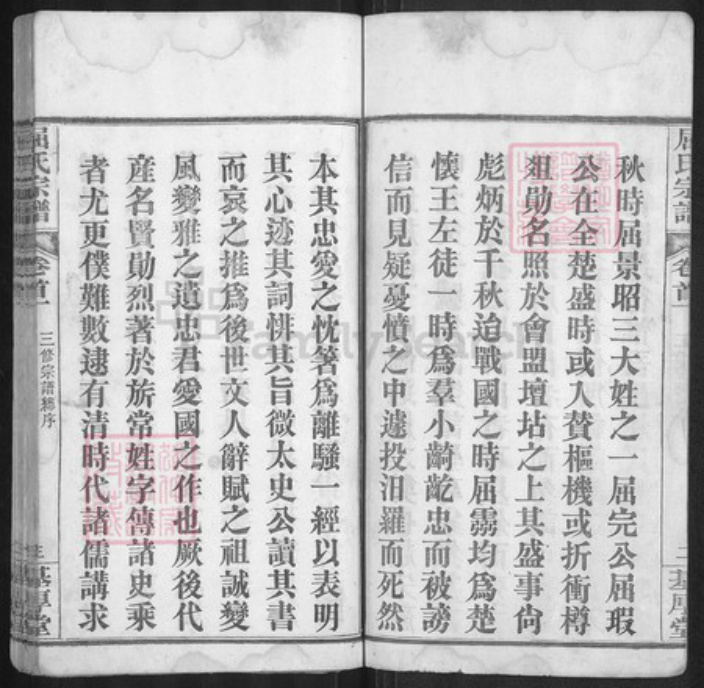 屈氏宗譜 卷首
秋時屈景昭三大姓之一屈完公屈瑕
公在全楚盛時或入贊樞機或折衝樽
俎勛名照於會盟壇坫之上其盛事尙
彪炳於千秋迨戰國之時屈靈均爲楚
懷王左徒一時爲羣小齮齕忠而被謗
信而見疑憂憤之中遽投汨羅而死然
本其忠愛之忱箸爲離騷一經以表明
其心迹其詞悱其旨微太史公讀其書
而哀之推爲後世文人辭賦之祖誠變
風變雅之遺忠君愛國之作也厥後代
產名賢勛烈著於旂常姓字傳諸史乘
者尤更僕難數逮有清時代諸儒講求
屈氏宗譜 卷首一
三修宗譜總序
三
基厚堂
FamilySearch